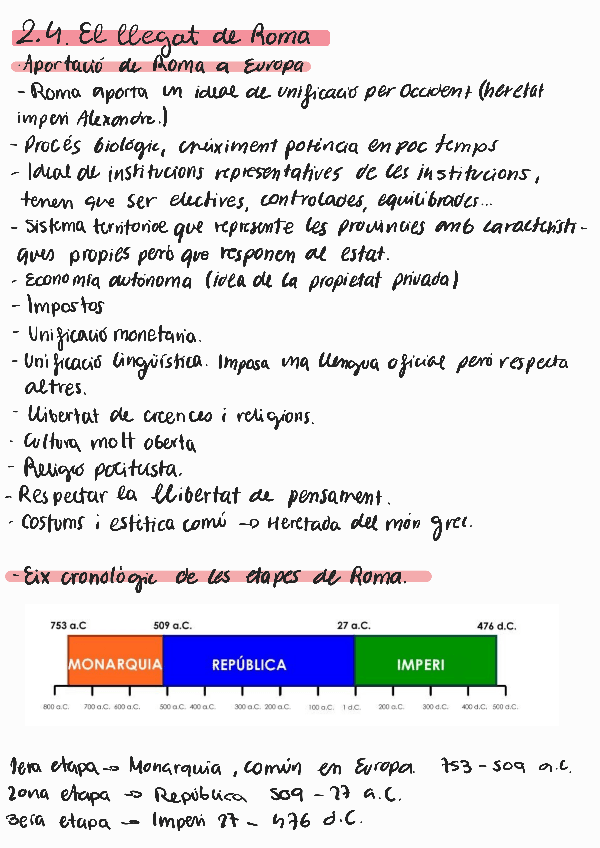 2.4. El llegat de Roma
· Aportació de Roma a Europa
- Roma aporta un ideal de unificació per Occident (heretat
imperi Alexandre.)
- Procés biològic, creiximent potència en poc temps
- Ideal de institucions representatives de les institucions,
tenen que ser electives, controlades, equilibrades...
- Sistema territorial que represente les províncies amb característi-
ques propies però que responen al estat.
- Economia autónoma (idea de la propietat privada)
- Impostos
- Unificació monetaria.
- Unificació lingüística. Imposa una llengua oficial però respecta
altres.
- Llibertat de creences i religions.
- Cultura molt oberta
- Religió politeista.
- Respectar la llibertat de pensament.
- Costums i estètica comú → Heretada del món grec.
- Eix cronològic de les etapes de Roma.
753 a.C 509 a.C. 27 a.C. 476 d.C.
MONARQUIA REPÚBLICA IMPERI
800 a.C. 700 a.C. 600 a.C. 500 a.C. 400 a.C. 300 a.C. 200 a.C. 100 a.C. 1 d.C. 200 a.C. 300 d.C. 400 d.C. 500 d.C.
1era etapa → Monarquia, común en Europa. 753 - 509 a.C.
2ona etapa → República 509 - 27 a.C.
3era etapa → Imperi 27 - 476 d.C.